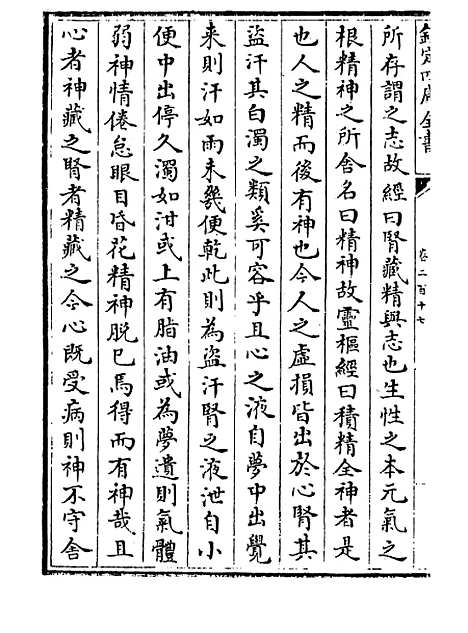 欽定四庫全書
卷二百十七
所存謂之志故經曰腎藏精與志也生性之本元氣之
根精神之所舍名曰精神故靈樞經曰積精全神者是
也人之精而後有神也今人之虛損皆出於心腎其
盜汗其白濁之類奚可容乎且心之液自夢中出覺
来則汗如雨未幾便乾此則為盜汗腎之液泄自小
便中出停久濁如泔或上有脂油或為夢遺則氣體
弱神情倦怠眼目昏花精神脱巳焉得而有神哉且
心者神藏之腎者精藏之今心既受病則神不守舍